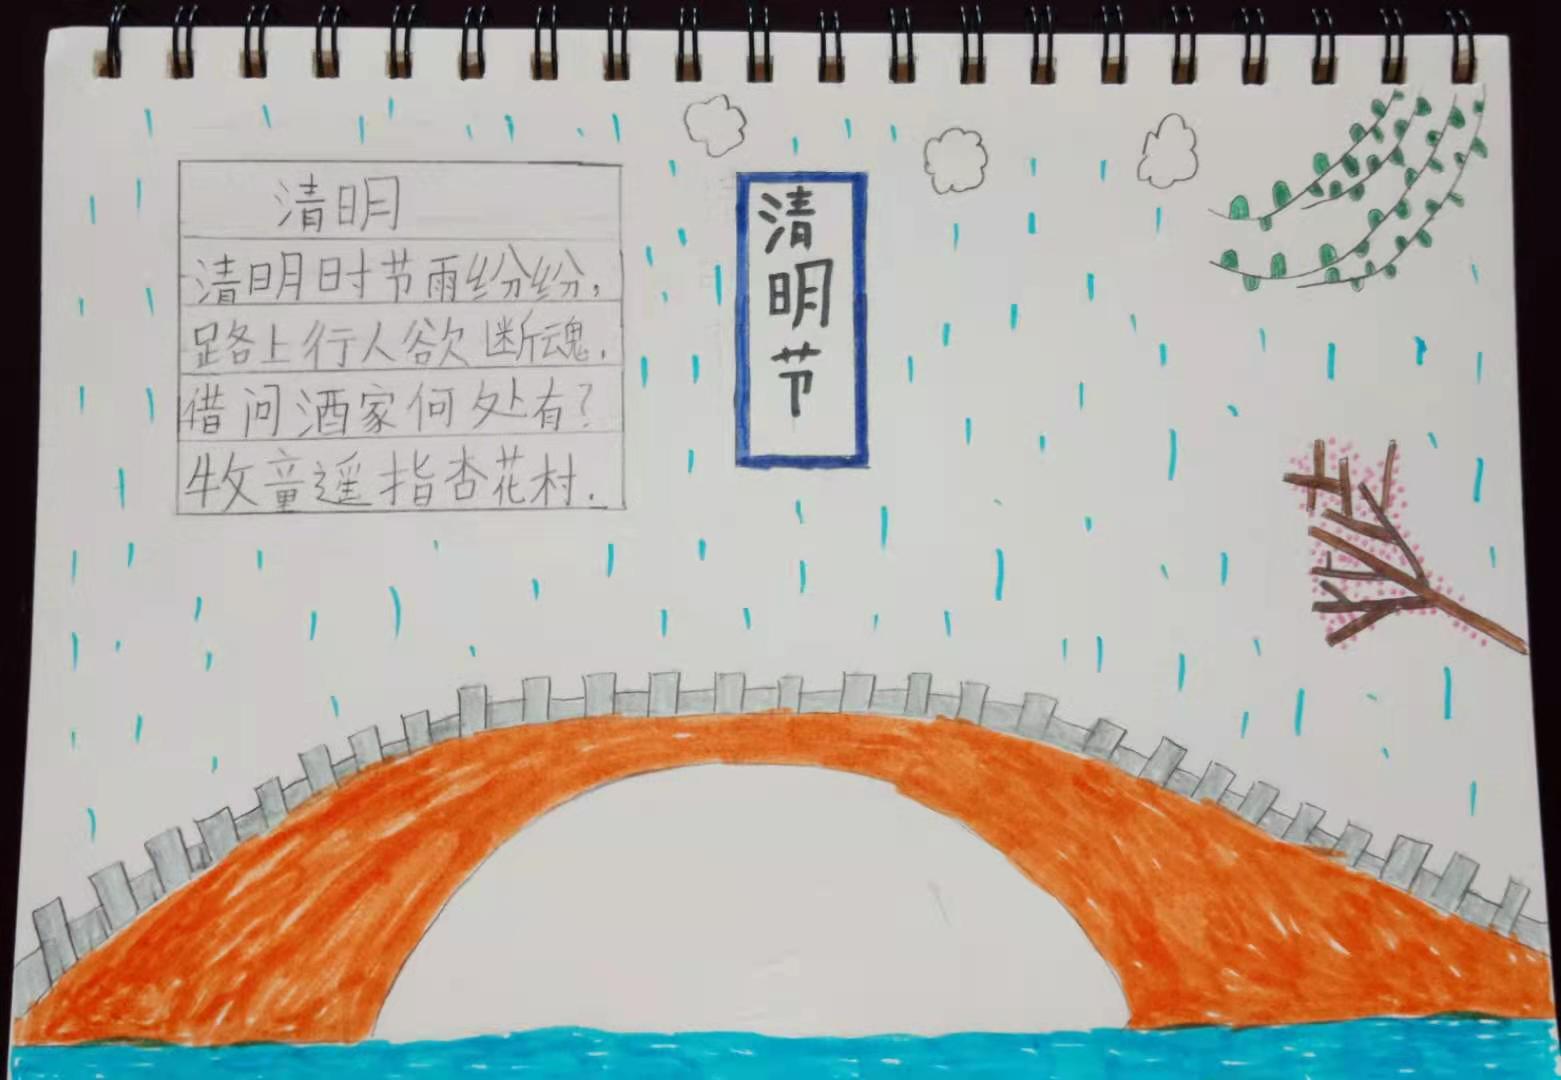 清明
清明时节雨纷纷，
路上行人欲断魂.
借问酒家何处有？
牧童遥指杏花村.
清明节